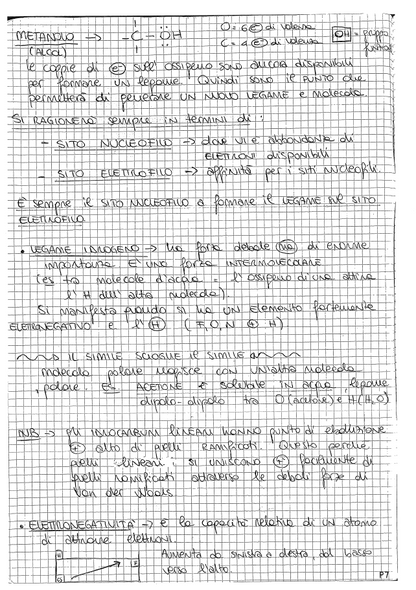 METANOLO → -C-ÖH O = 6 e⁻ di valenza OH = gruppo
(ALCOL) C = 4 e⁻ di valenza funzion.
le coppie di e⁻ sull' ossigeno sono ancora disponibili
per formare un legame. Quindi sono il PUNTO che
permetterà di generare un NUOVO LEGAME e molecola.
SI RAGIONERÀ sempre in termini di:
- SITO NUCLEOFILO → dove vi è abbondanza di
ELETTRONI disponibili
- SITO ELETTROFILO → affinità per i siti nucleofili
È sempre il SITO NUCLEOFILO a formare il LEGAME sul SITO
ELETTROFILO
• LEGAME IDROGENO → ha forza debole ma di enorme
importanza. E' una forza INTERMOLECOLARE
(es tra molecole d'acqua: l'ossigeno di una attira
l'H dell'altra molecola).
Si manifesta quando si ha un elemento fortemente
ELETTRONEGATIVO e l'H (F, O, N + H)
IL SIMILE SCIOGLIE IL SIMILE
molecola polare reagisce con un'altra molecola
polare. ES ACETONE è solubile IN acqua, legame
dipolo-dipolo tra O (acetone) e H (H₂O)
NB → gli IDROCARBURI LINEARI hanno punto di ebollizione
+ alto di quelli RAMIFICATI. Questo perchè
quelli lineari si uniscono + fortemente di
quelli ramificati attraverso le deboli forze di
Van der Waals
• ELETTRONEGATIVITA' → è la capacità relativa di un atomo
di attrarre elettroni.
Aumenta da sinistra a destra, dal basso
verso l'alto.
P7